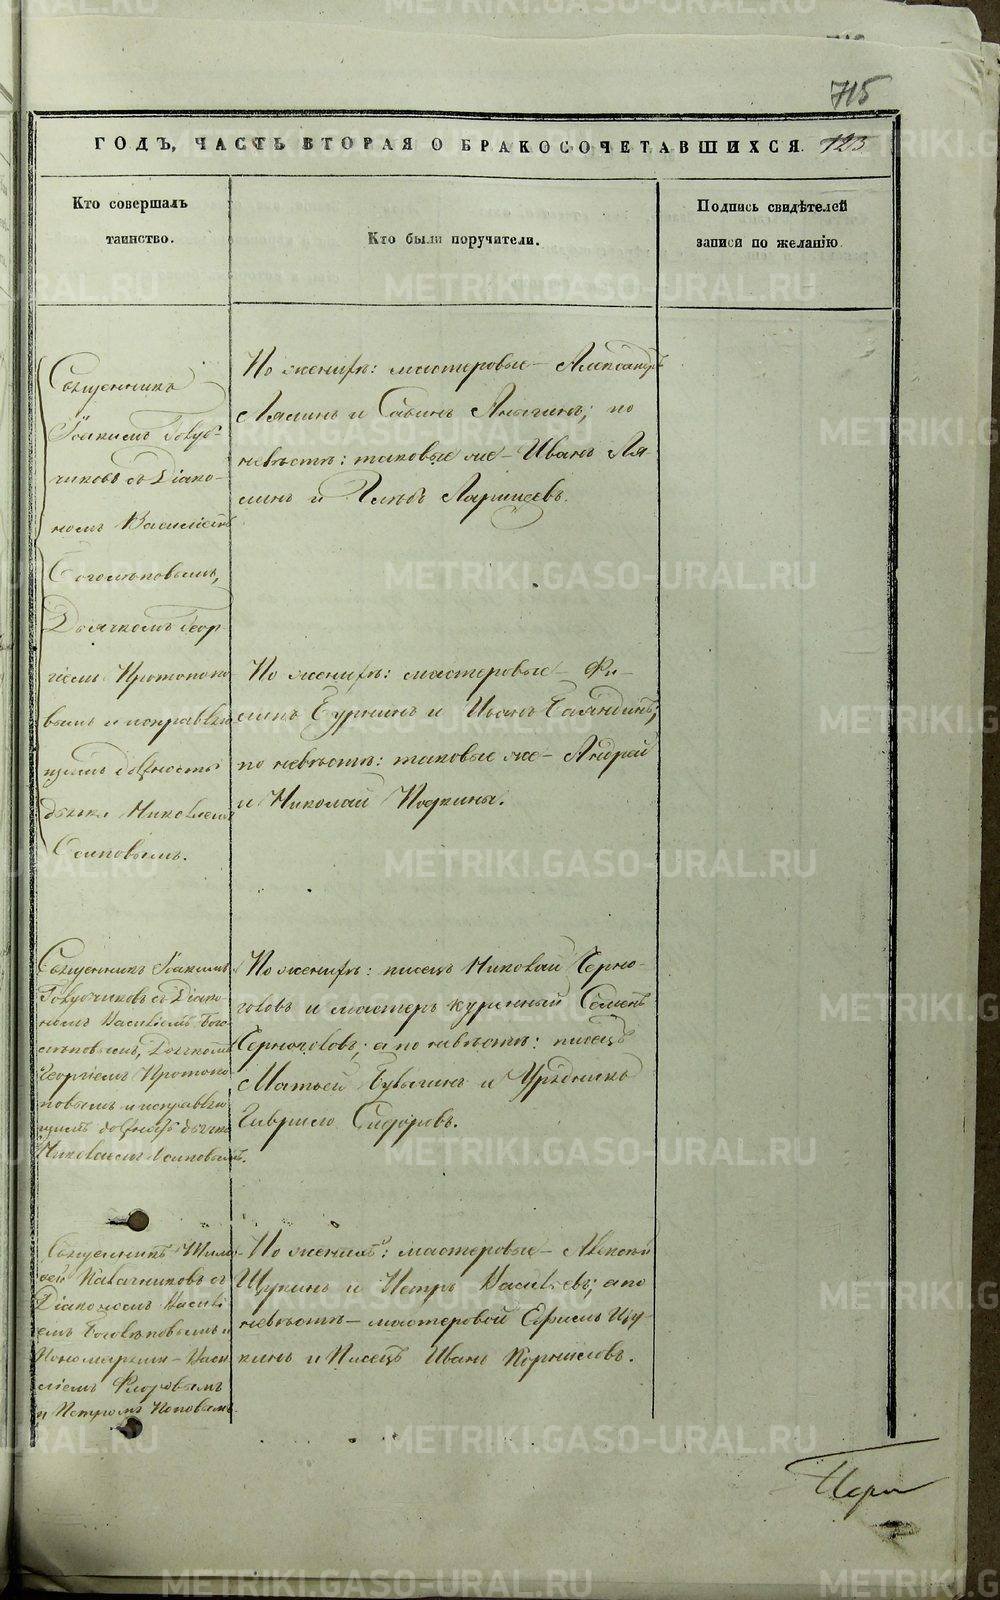 715
ГОДЪ, ЧАСТЬ ВТОРАЯ О БРАКОСОЧЕТАВШИХСЯ. 123
Кто совершалъ
таинство.
Кто были поручители.
Подпись свидѣтелей
записи по желанію.
Священникъ
Іоакимъ Голуб-
чиковъ съ Діако-
номъ Василіемъ
Боголѣповымъ,
Дьячкомъ Геор-
гіемъ Протопопо
вымъ и исправляю
щимъ должность
дьячка Николаемъ
Осиповымъ.
По женихѣ: мастеровые – Александръ
Лялинъ и Савинъ; по
невѣстѣ: таковые же – Иванъ Ля
линъ и Глѣбъ Ларинцевъ.
По женихѣ: мастеровые – Фи-
липъ Буркинъ и Иванъ Баяндинъ;
по невѣстѣ: таковые же – Андрей
и Николай
Священникъ Іоакимъ
Голубчиковъ съ Діако-
номъ Василіемъ Бого
лѣповымъ, Дьячкомъ
Георгіемъ Протопо-
повымъ и исправляю
щимъ должность дьячка
Николаемъ Осиповымъ.
По женихѣ: писецъ Николай Черно-
головъ и мастеръ куренный Семенъ
Черноголовъ; а по невѣстѣ: писецъ
Матвей Булыгинъ и Урядникъ
Гаврило Сидоровъ.
Священникъ Тимо-
фей Калачниковъ съ
Діакономъ Василі
емъ Боголѣповымъ и
Пономарями – Васи
ліемъ Флоровымъ
и Петромъ Поповымъ.
По женихѣ: мастеровые – Алексѣй
Щукинъ и Петръ Васильевъ; а по
невѣстѣ – мастеровой Ефимъ Щу-
кинъ и Писецъ Иванъ Корниловъ.
METRIKI.GASO-URAL.RU